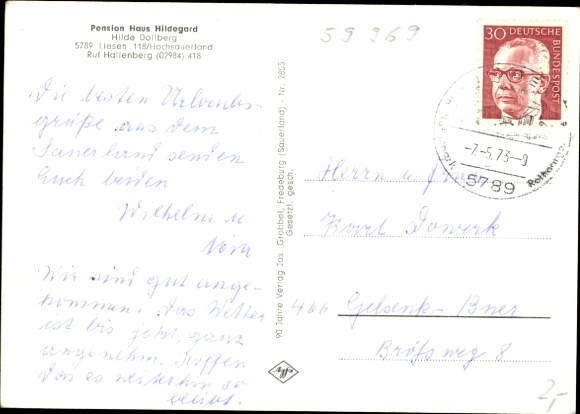 Pension Haus Hildegard
Hilde Dollberg
5789 Liesen 118/Hochsauerland
Ruf Hallenberg (02984) 418
59 969
30 DEUTSCHE
BUNDESPOST
-7.-5.73-9
5789
Die besten Urlaubs-
grüße aus dem
Sauerland senden
Euch beiden
Wilhelm u
Nora
Wir sind gut ange-
kommen. Das Wetter
ist bis jetzt ganz
angenehm. Hoffen
das es weiterhin so
bleibt.
90 Jahre Verlag Jos. Grobbel, Fredeburg (Sauerland) - Nr. 2855
Gesetzl. gesch.
Herrn u Frau
Karl Dowerk
466 Gelsenk-Buer
8
2,-